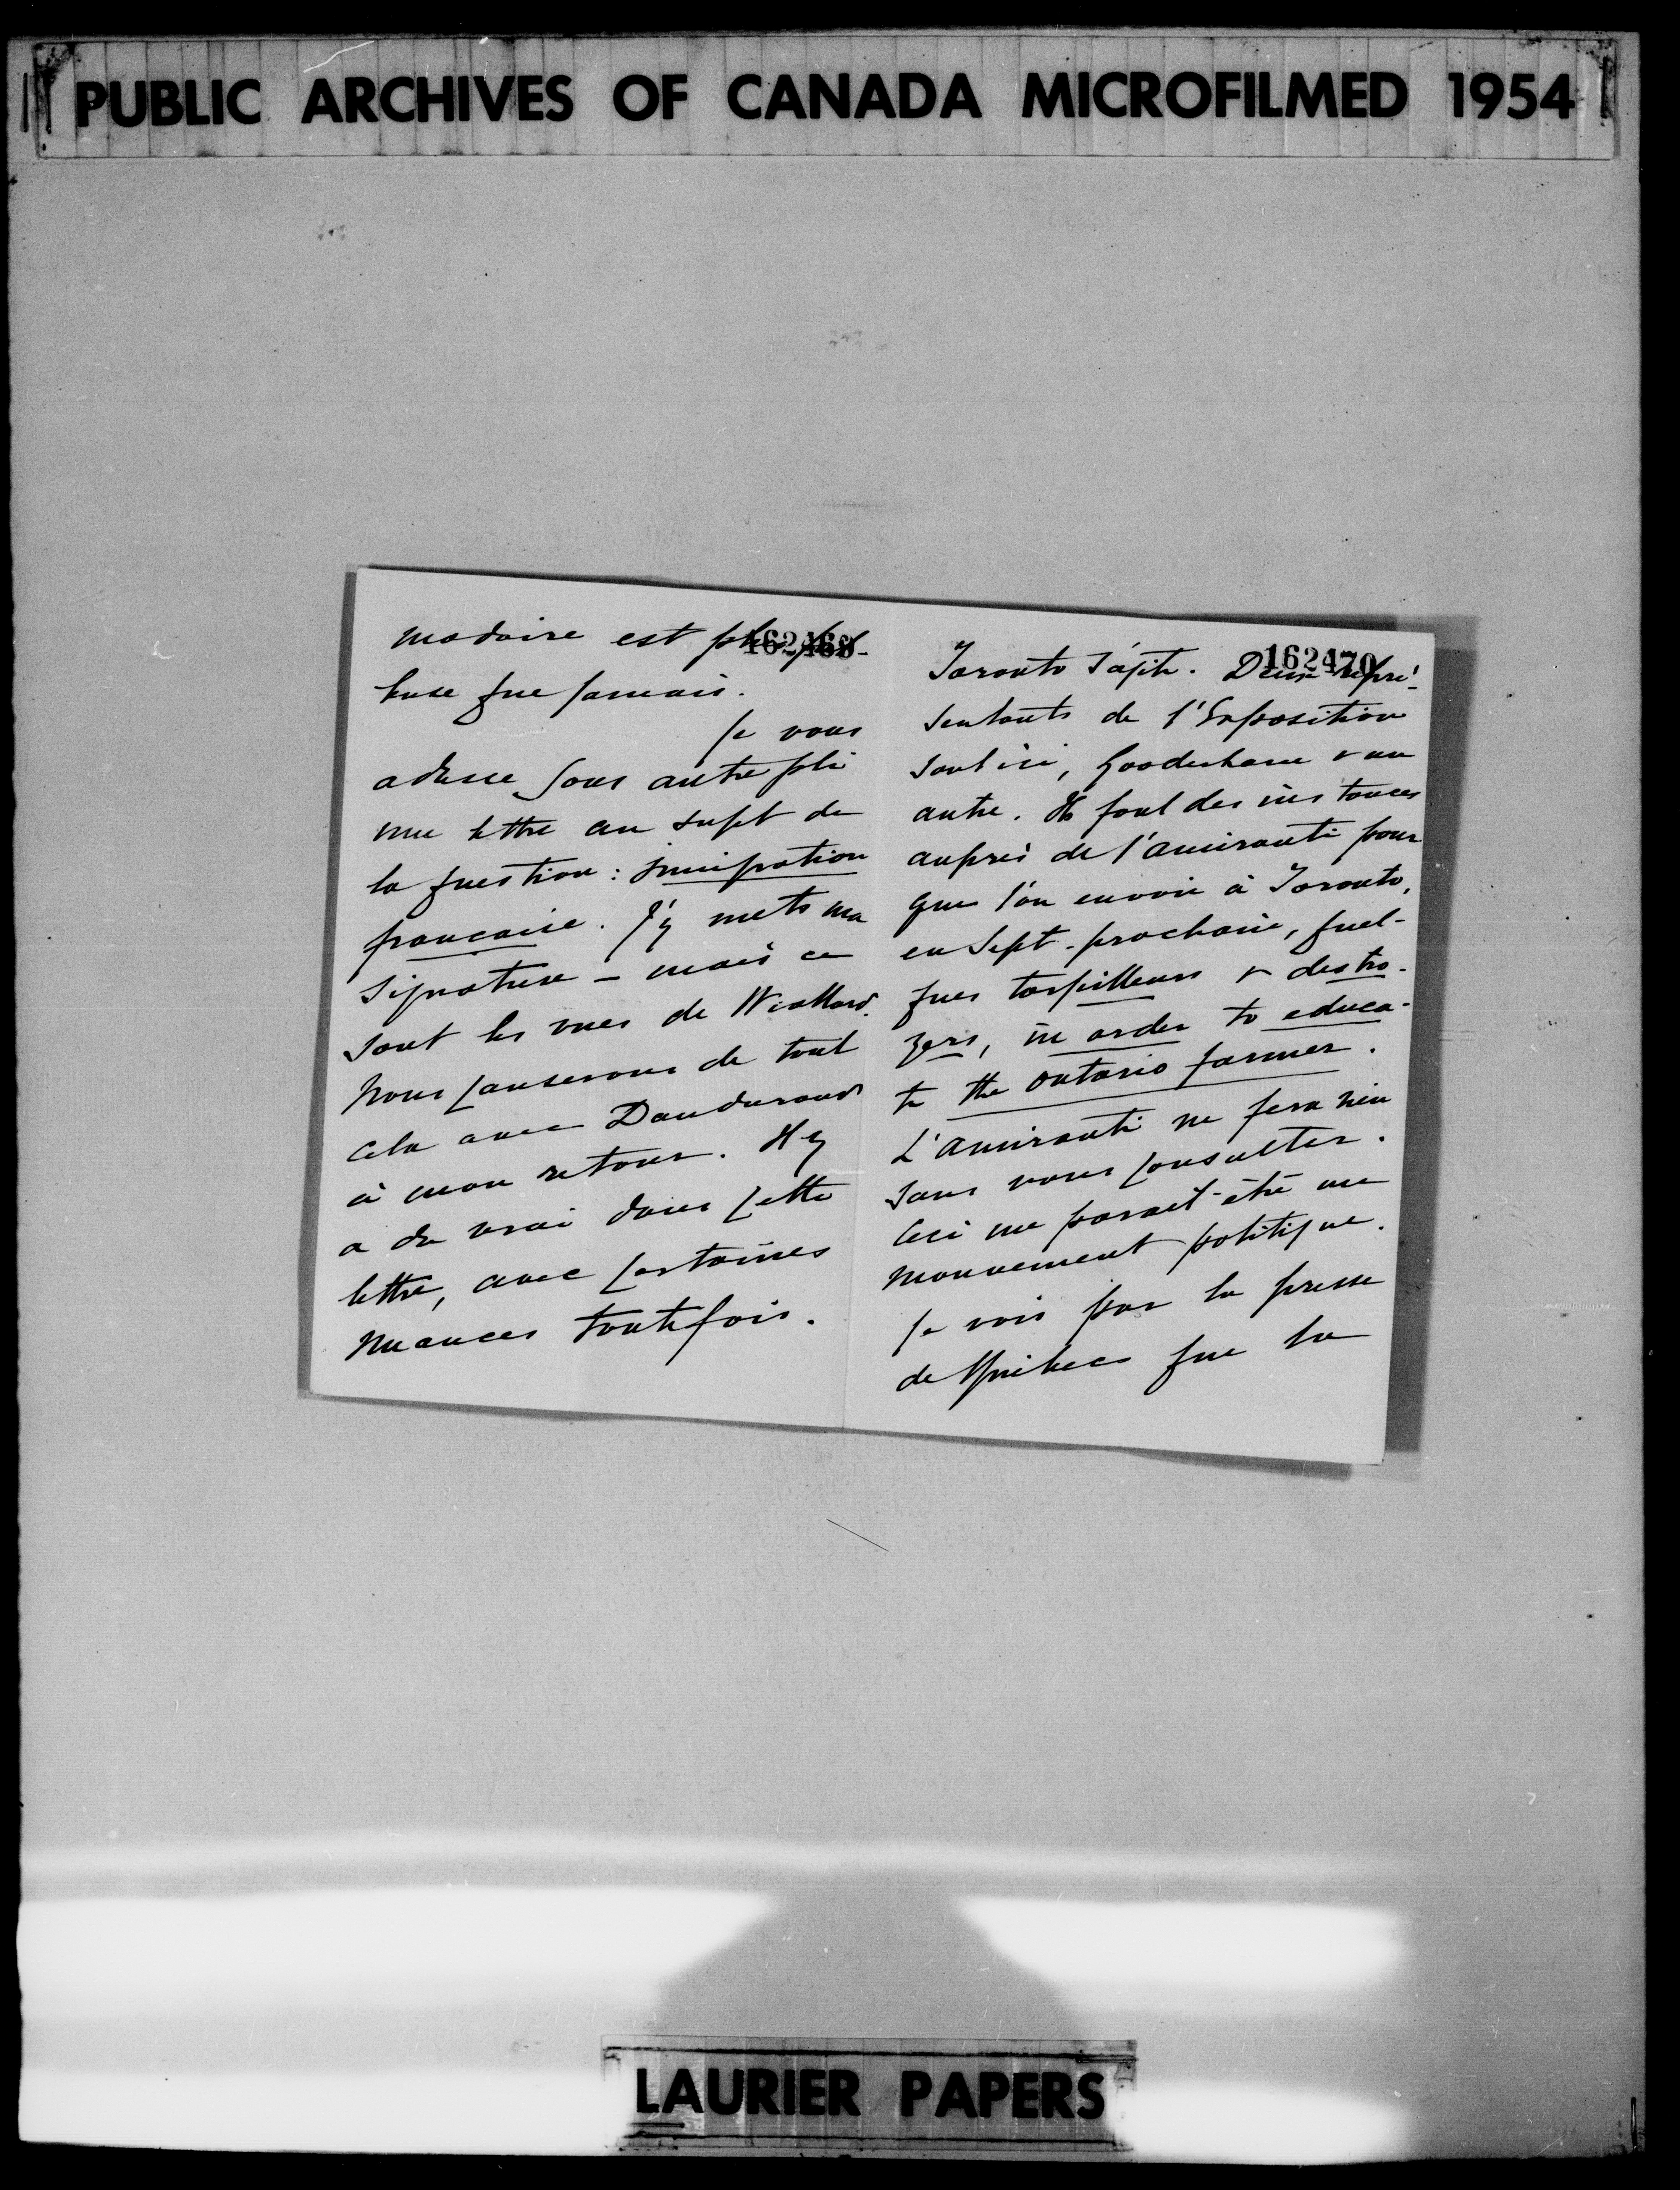 PUBLIC ARCHIVES OF CANADA MICROFILMED 1954
madaire est plus
buse que jamais.
Je vous
adresse sous autre pli
une lettre au sujet de
la question : immigration
française. J'y mets ma
signature – mais ce
sont les vues de Wiallard.
Nous causerons de tout
cela avec Dandurand
à mon retour. Il y
a du vrai dans cette
lettre, avec certaines
nuances toutefois.
162470
Toronto s'agite. Deux repré-
sentants de l'Exposition
sont ici, Gooderham & un
autre. Ils font des instances
auprès de l'amirauté pour
que l'on envoie à Toronto,
en Sept. prochain, quel-
ques torpilleurs & destro-
yers, in order to educa-
te the Ontario farmer.
L'amirauté ne fera rien
sans vous consulter.
Ceci me parait être un
mouvement politique.
Je vois par la presse
de Québec que la
LAURIER PAPERS